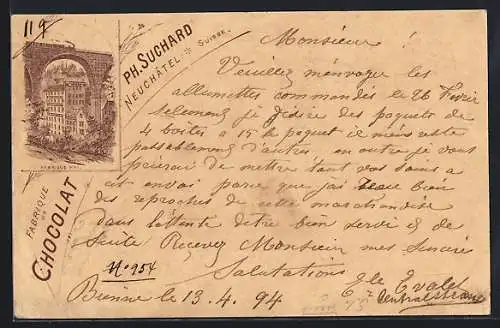 119
PH. SUCHARD
NEUCHÂTEL SUISSE
FABRIQUE DE
CHOCOLAT
Monsieur!
Veuillez m'envoyer les
allumettes commandés le 26 Février
seulement je désire des paquets de
4 boîtes a 15 le paquet il m'en reste
passablement d'autres en outre je vous
prierai de mettre tout vos soins a
cet envoi parce que j'ai beau bien
des reproches de cette marchandise
dans l'attente d'etre bien servi & de
suite Recevez Monsieur mes sincères
Salutations
No 954
Bienne le 13. 4. 94
Centralstrasse